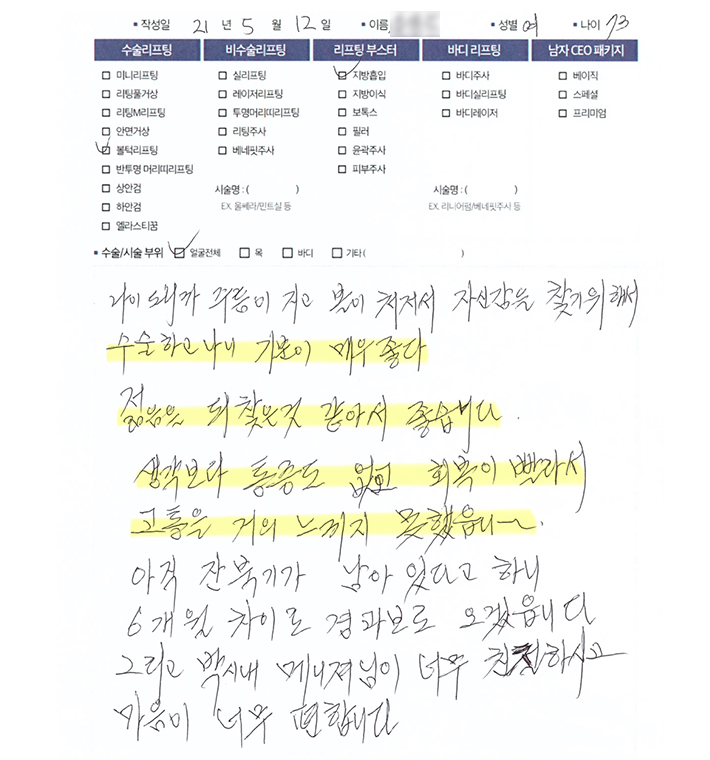 ▪ 작성일 21 년 5 월 12 일 ▪ 이름 ▪ 성별 여 ▪ 나이 73
수술리프팅 비수술리프팅 리프팅 부스터 바디 리프팅 남자 CEO 패키지
미니리프팅 실리프팅 지방흡입 바디주사 베이직
리팅풀거상 레이저리프팅 지방이식 바디실리프팅 스페셜
리팅M리프팅 투명머리띠리프팅 보톡스 바디레이저 프리미엄
안면거상 리팅주사 필러
볼턱리프팅 베네핏주사 윤곽주사
반투명 머리띠리프팅 피부주사
상안검 시술명 : ( ) 시술명 : ( )
하안검 EX. 울쎄라/민트실 등 EX. 리니어펌/베네핏주사 등
엘라스티꿈
▪ 수술/시술 부위 얼굴전체 목 바디 기타 ( )
나이 드니까 주름이 지고 볼이 쳐저서 자신감을 찾기위해서
수술하고나니 기분이 매우 좋다
젊음을 되찾은것 같아서 좋습니다.
생각보다 통증도 없고 회복이 빨라서
고통을 거의 느끼지 못했읍니다~.
아직 잔붓기가 남아 있다고 하니
6개월 차이로 경과보로 오겠읍니다
그리고 백시내 메니져님이 너무 친절하시고
마음이 너무 편합니다